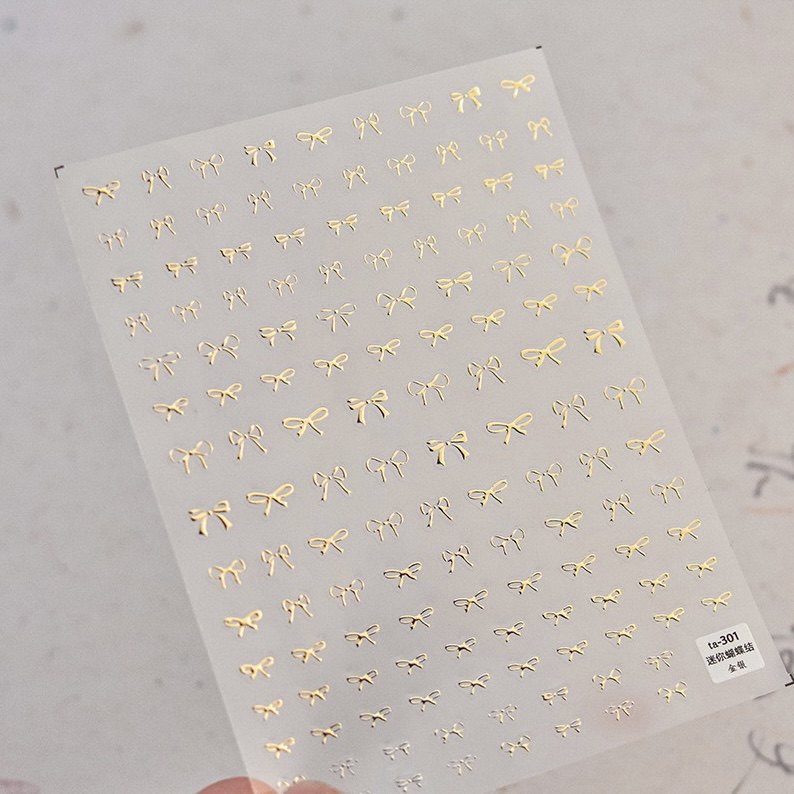 ta-301
迷你蝴蝶结
金银